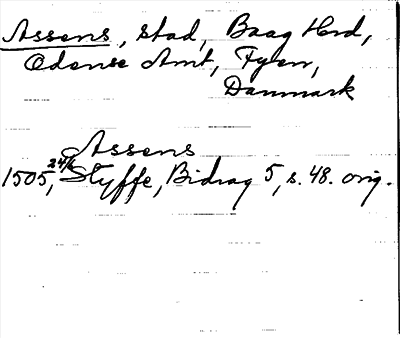 Assens, stad, Baag Hrd,
Odense Amt, Fyen,
Danmark
Assens
1505, 24/6 Styffe, Bidrag 5, s. 48. orig.